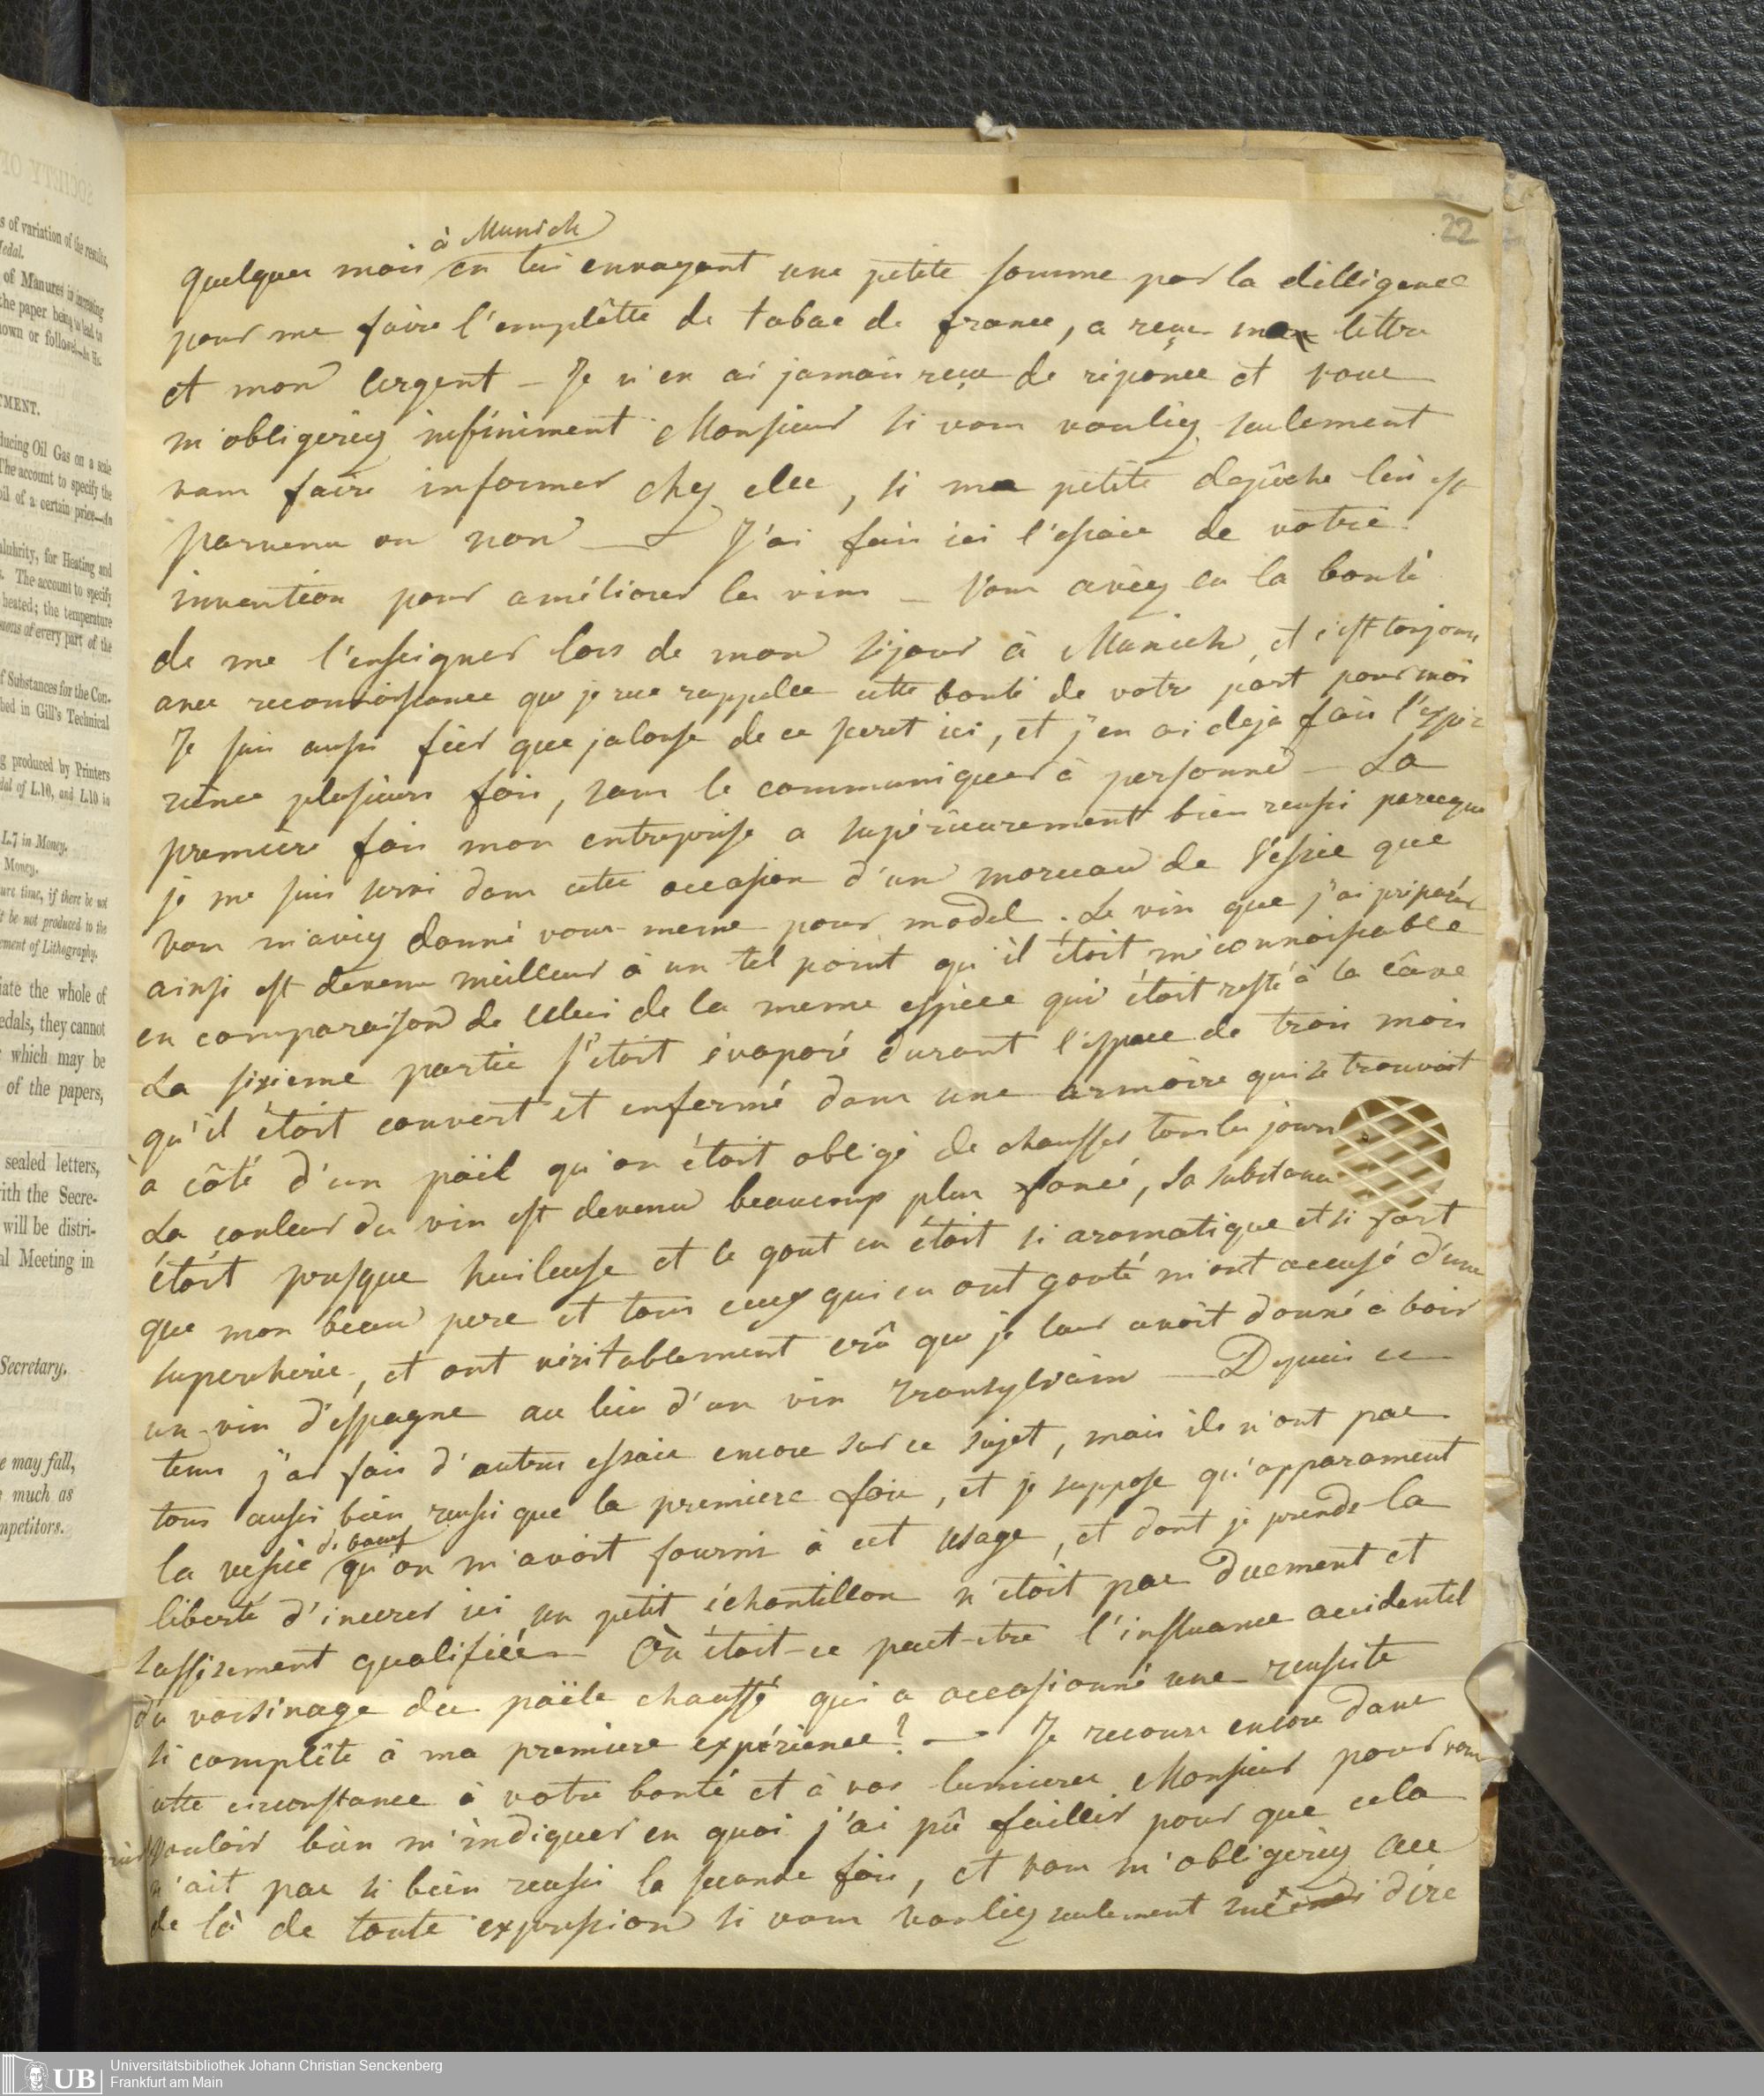 22
à Munich
quelques mois en lui envoyant une petite somme par la dilligence
pour me faire l'emplêtte de tabac de france, a reçu ma lettre
et mon argent – Je n'en ai jamais reçu de réponce et vous
m'obligeriez infiniment Monsieur si vous vouliez seulement
vous faire informer chez elle, si ma petite depêche lui est
parvenu ou non — J'ai fais ici l'essaie de votre
invention pour améliorer les vins – Vous aviez eu la bonté
de me l'enseigner lors de mon séjour à Munich, et c'est toujours
avec reconnoissance que je me rappelle cette bonté de votre part pour moi
Je suis aussi fièr que jalouse de ce secret ici, et j'en ai deja fais l'expé-
rience plusieurs fois, sans le communiquer à personne – La
première fois mon entreprise a supérieurement bien reussi parceque
je me suis servi dans cette occasion d'un morceau de vessie que
vous m'aviez donné vous-meme pour model. Le vin que j'ai préparé
ainsi est devenu meilleur à un tel point qu'il étoit méconnoissable
en comparaison de celui de la meme espèce qui étoit resté à la câve
La sixieme partie s'étoit évaporé durant l'espace de trois mois
qu'il étoit couvert et enfermé dans une armoire qui se trouvoit
à côté d'un poël qu'on étoit obligé de chauffer tous les jours.
La couleur du vin est devenu beaucoup plus foncé, sa substance
étoit presque huileuse et le gout en étoit si aromatique et si fort
que mon beau pere et tous ceux qui en ont gouté m'ont accusé d'une
supercherie, et ont véritablement crû que je leur avoit donné à boir
un vin d'espagne au lieu d'un vin transylvain — Depuis ce
tems j'ai fais d'autres essaie encore sur ce sujet, mais ils n'ont pas
tous aussi bien reussi que la premiere fois, et je suppose qu'apparament
de bœuf
la vessie qu'on m'avoit fourni à cet usage, et dont je prends la
liberté d'incerer ici un petit échantillon n'etoit pas duement et
suffisement qualifiée – Où étoit-ce peut-etre l'influance accidentel
du voisinage du poële chauffé qui a occasionné une reussite
si complête à ma premiere expérience? — Je recours encore dans
cette circonstance à votre bonté et à vos lumieres Monsieur pour
vouloir bien m'indiquer en quoi j'ai pû faillir pour que cela
n'ait pas si bien reussi la seconde fois, et vous m'obligeriez au
de là de toute expression si vous vouliez seulement dire
SOCIETY OF
s of variation of the results,
Medal.
of Manures in increasing
the paper being to lead to
TMENT.
ducing Oil Gas on a scale
The account to specify the
oil of a certain price
alubrity, for Heating and
The account to specify
heated; the temperature
of every part of the
f Substances for the Con-
bed in Gill's Technical
g produced by Printers
dal of L.10, and L.10 in
L.7 in Money.
Money.
ure time, if there be not
it be not produced to the
ement of Lithography.
iate the whole of
edals, they cannot
which may be
of the papers,
sealed letters,
with the Secre-
will be distri-
al Meeting in
Secretary.
e may fall,
much as
mpetitors.
UB Universitätsbibliothek Johann Christian Senckenberg
Frankfurt am Main